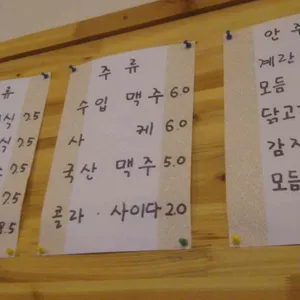 류
식 7.5
식 7.5
7.5
7.5
8.5
주 류
수입 맥주 6.0
사 케 6.0
국산 맥주 5.0
콜라 · 사이다 2.0
안 주
계란
모듬
닭고
감자
모듬